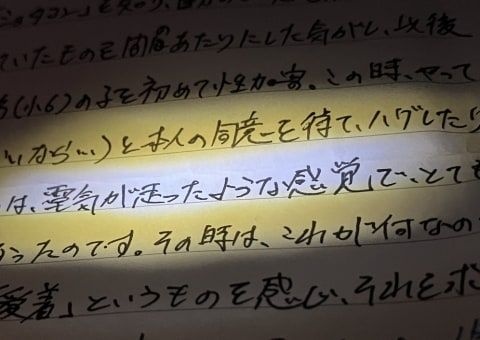 ていたものを目の当たりにした気がし、以後
(小6)の子を初めて性加害。この時、やって
いいなら…)と本人の同意を得て、ハグしたり
は、電気が走ったような感覚で、とても
かったのです。その時は、これが何なの
愛着」というものを感じ、それを求